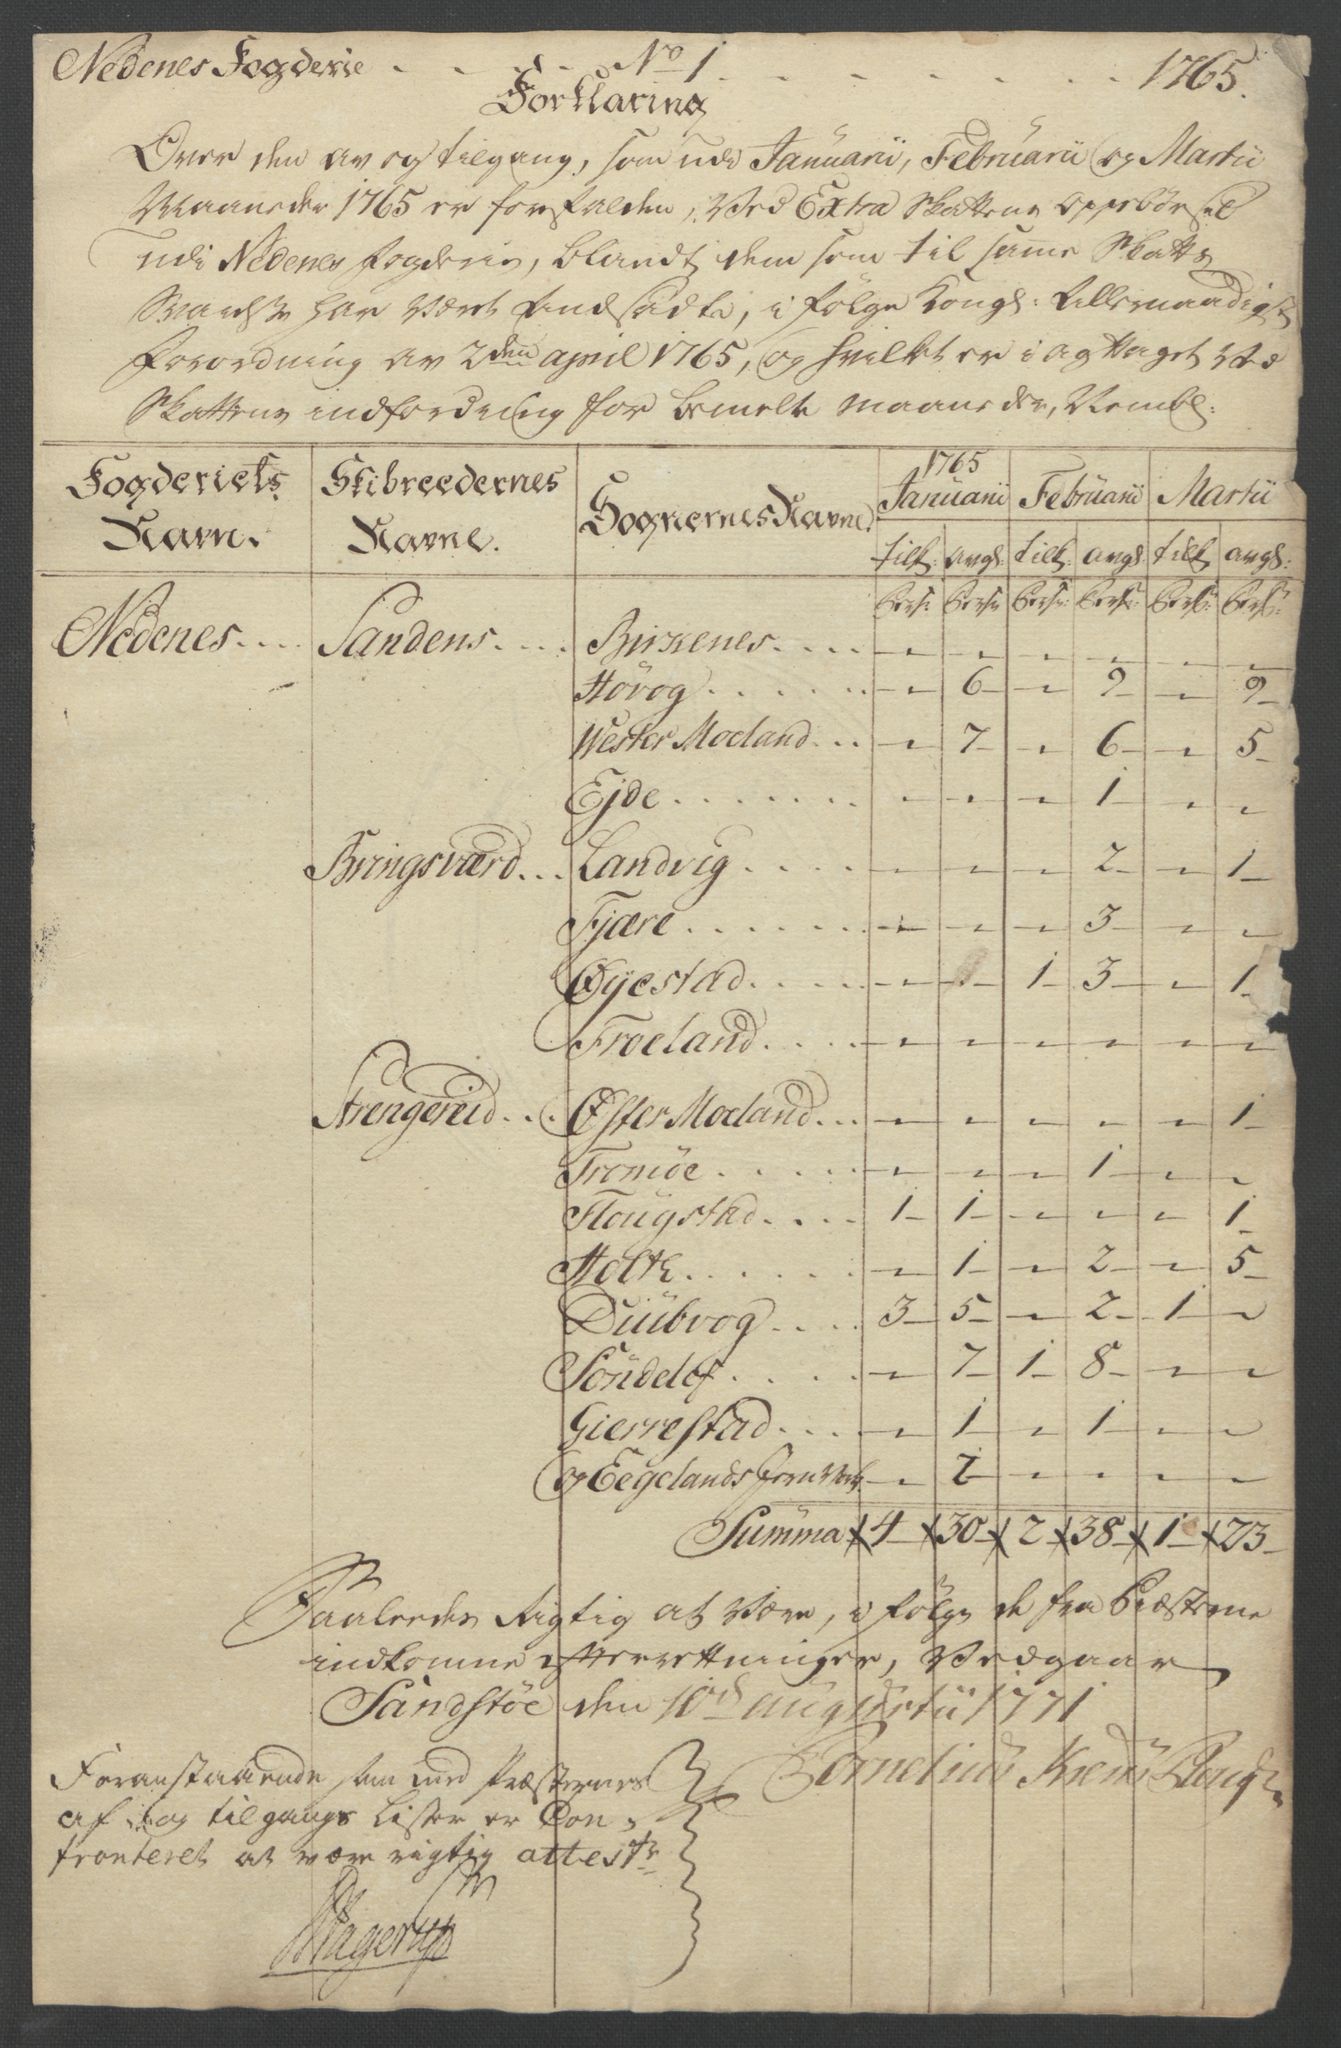 Nedenes Fogderie . . . . . No 1 . . . . . . . 1765.
Forklaring
Over den av og tilgang, som udi Januarii, Februarii og Martii
Maaneder 1765 er forfalden, Ved Extra Skattens Oppebørsel
udi Nedenes fogderie, blandt dem som til samme Skatts
har været Andsadte, i følge Kongl: Allernaadigst
Forordning av 2den april 1765, og hvilket er i agttaget Ved
Skattens indfordring for bemelte maaneder, Nembl:
Fogderiets Navn. | Skibreedernes Navne. | Sognernes Navne. | 1765 Januarii | Februarii | Martii
tilk: | avgl: | tilk: | avgl: | tilk: | avgl:
Pers: | Pers: | Pers: | Pers: | Pers: | Pers:
Nedenes . . . . Sandens . . . . Birrenes . . . . - - - - - -
Høvog . . . . . - 6 - 9 - 9
Wester Moeland . . . - 7 - 6 - 5
Ejde . . . . . . - - - 1 - -
Bringsværd . . . Landvig . . . . - - - 2 - 1
Fjære . . . . . - - - 3 - -
Øyestad . . . . - - 1 3 - 1
Froeland . . . . - - - - - -
Strengereid . . . Øster Moeland . . . - - - - - 1
Tromöe . . . . . - - - 1 - -
Flougstad . . . . 1 1 - - - 1
Holtt . . . . . - 1 - 2 - 5
Diübvog . . . . 3 5 - 2 1 -
Söndelöf . . . . - 7 1 8 - -
Gierrestad . . . . - 1 - 1 - -
og Eegelands Jern Verk - 2 - - - -
Summa 4 30 2 38 1 23
Saaledes Rigtig at Være, i følge de fra Præsterne
indkomne efterretninger, Vedgaar
Sandstöe den 10de augustii 1771
Cornelius
Foranstaaende som med Præsternes
af- og tilgangs Lister er Con-
fronteret at være rigtig attestr
Hagerup